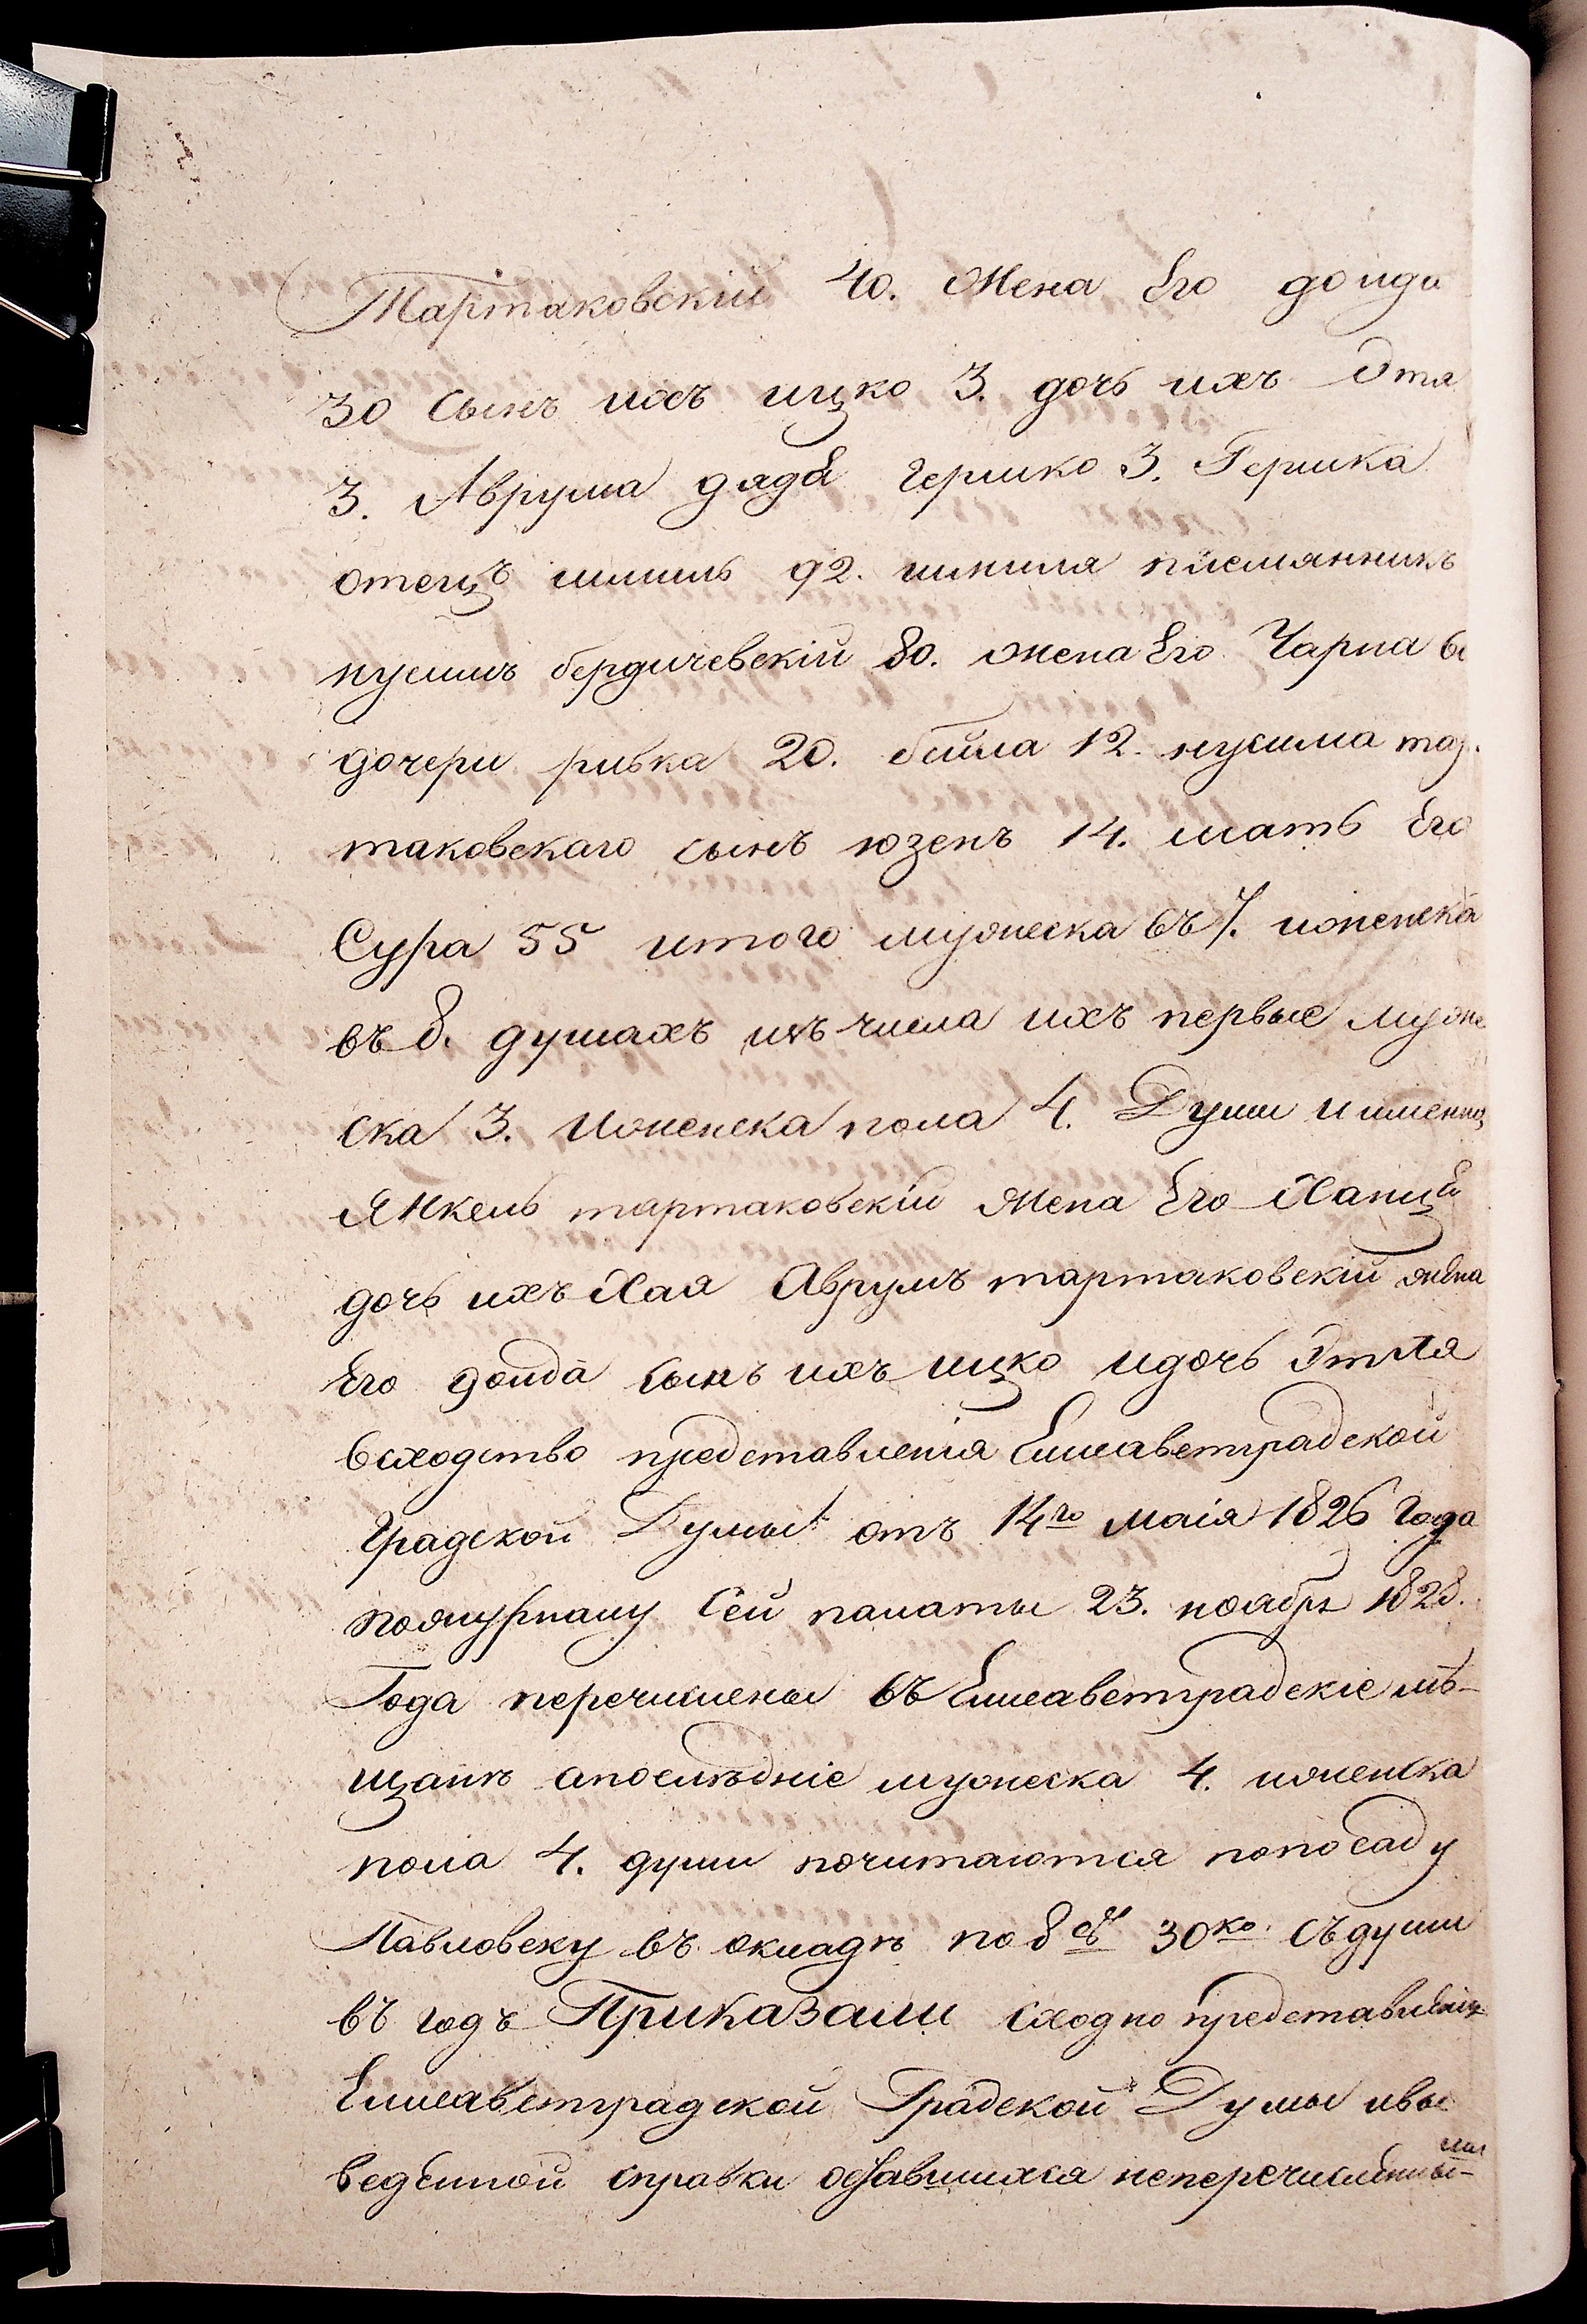 Тартаковскій 40. Жена Его доида
30 Сынъ ихъ ицко 3. дочь ихъ Эта
3. Аврума дядя гершко 3. Гершка
отецъ шмиль 92. шмиля племянникъ
нусимъ бердичевскій 80. жена Его Чарна
дочери ривка 20. бейла 12. нусима тар-
таковскаго сынъ юзепъ 14. мать Его
Сура 55 итого мужеска въ 7. иженска
въ 8. душахъ изъ числа ихъ первые муже
ска 3. Иженска пола 4. Души иименно,
Янкель тартаковскій Жена Его Ханця
дочь ихъ Хая Аврумъ тартаковскій жена
Его доида сынъ ихъ ицко идочь Этля
всходство представленія Елисаветградской
Градской Думы отъ 14го маія 1826 Года
пожурналу Сей палаты 23. ноября 1828.
Года перечислены въ Елисаветградскіе мѣ-
щанѣ апослѣдніе мужеска 4. иженска
пола 4. души почитаются попосаду
Павловску въ окладѣ по 8 30ко. съдуши
въ годъ Приказали сходно
Елисаветградской Градской Думы ивы
веденной справки оставшихся неперечисленны-
ми